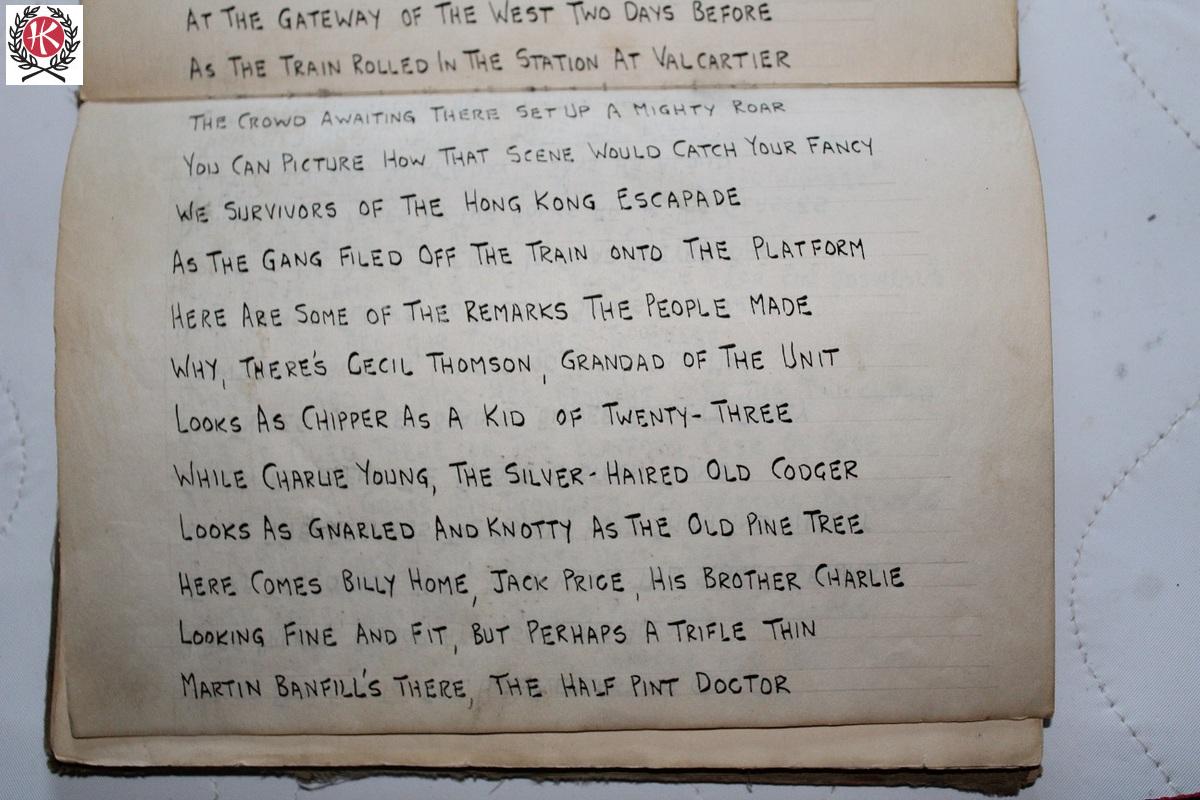 AT THE GATEWAY OF THE WEST TWO DAYS BEFORE
AS THE TRAIN ROLLED IN THE STATION AT VALCARTIER
THE CROWD AWAITING THERE SET UP A MIGHTY ROAR
YOU CAN PICTURE HOW THAT SCENE WOULD CATCH YOUR FANCY
WE SURVIVORS OF THE HONG KONG ESCAPADE
AS THE GANG FILED OFF THE TRAIN ONTO THE PLATFORM
HERE ARE SOME OF THE REMARKS THE PEOPLE MADE
WHY, THERE'S CECIL THOMSON, GRANDAD OF THE UNIT
LOOKS AS CHIPPER AS A KID OF TWENTY-THREE
WHILE CHARLIE YOUNG, THE SILVER-HAIRED OLD CODGER
LOOKS AS GNARLED AND KNOTTY AS THE OLD PINE TREE
HERE COMES BILLY HOME, JACK PRICE, HIS BROTHER CHARLIE
LOOKING FINE AND FIT, BUT PERHAPS A TRIFLE THIN
MARTIN BANFILL'S THERE, THE HALF PINT DOCTOR
HK